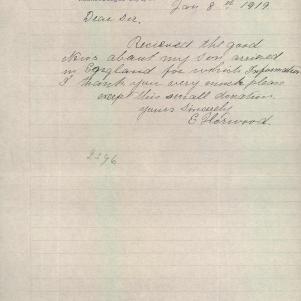 Jan 8th 1919
Dear Sir.
Received the good
News about my son arrived
in England for which Information
I thank you very much please
except this small donation
yours Sincerely
E Horwood.
2296